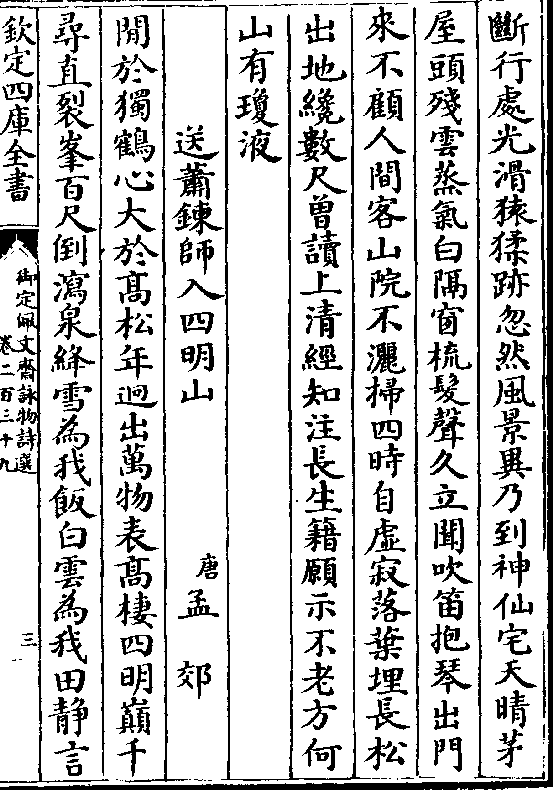 斷行處光滑猿猱跡忽然風景異乃到神仙宅天晴茅
屋頭殘雲蒸氣白隔窗梳髮聲久立聞吹笛抱琴出門
來不顧人間客山院不灑掃四時自虛寂落葉埋長松
出地纔數尺曾讀上清經知注長生籍願示不老方何
山有瓊液
送蕭鍊師入四明山 唐 孟郊
閒於獨鶴心大於髙松年迥出萬物表髙棲四明巔千
尋直裂峯百尺倒瀉泉絳雪為我飯白雲為我田静言
欽定四庫全書
御定佩文齋詠物詩選
卷二百三十九
三